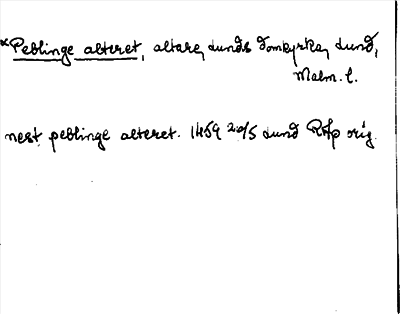 *Peblinge alteret, altare, Lunds domkyrka, Lund,
Malm. l.
nest peblinge alteret. 1459 20/5 Lund Rfp orig.